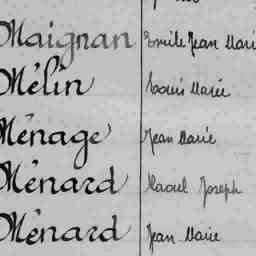 Maignan Emile Jean Mari
Mélin Louis Marie
Ménage Jean Marie
Ménard Raoul Joseph
Ménard Jean Marie